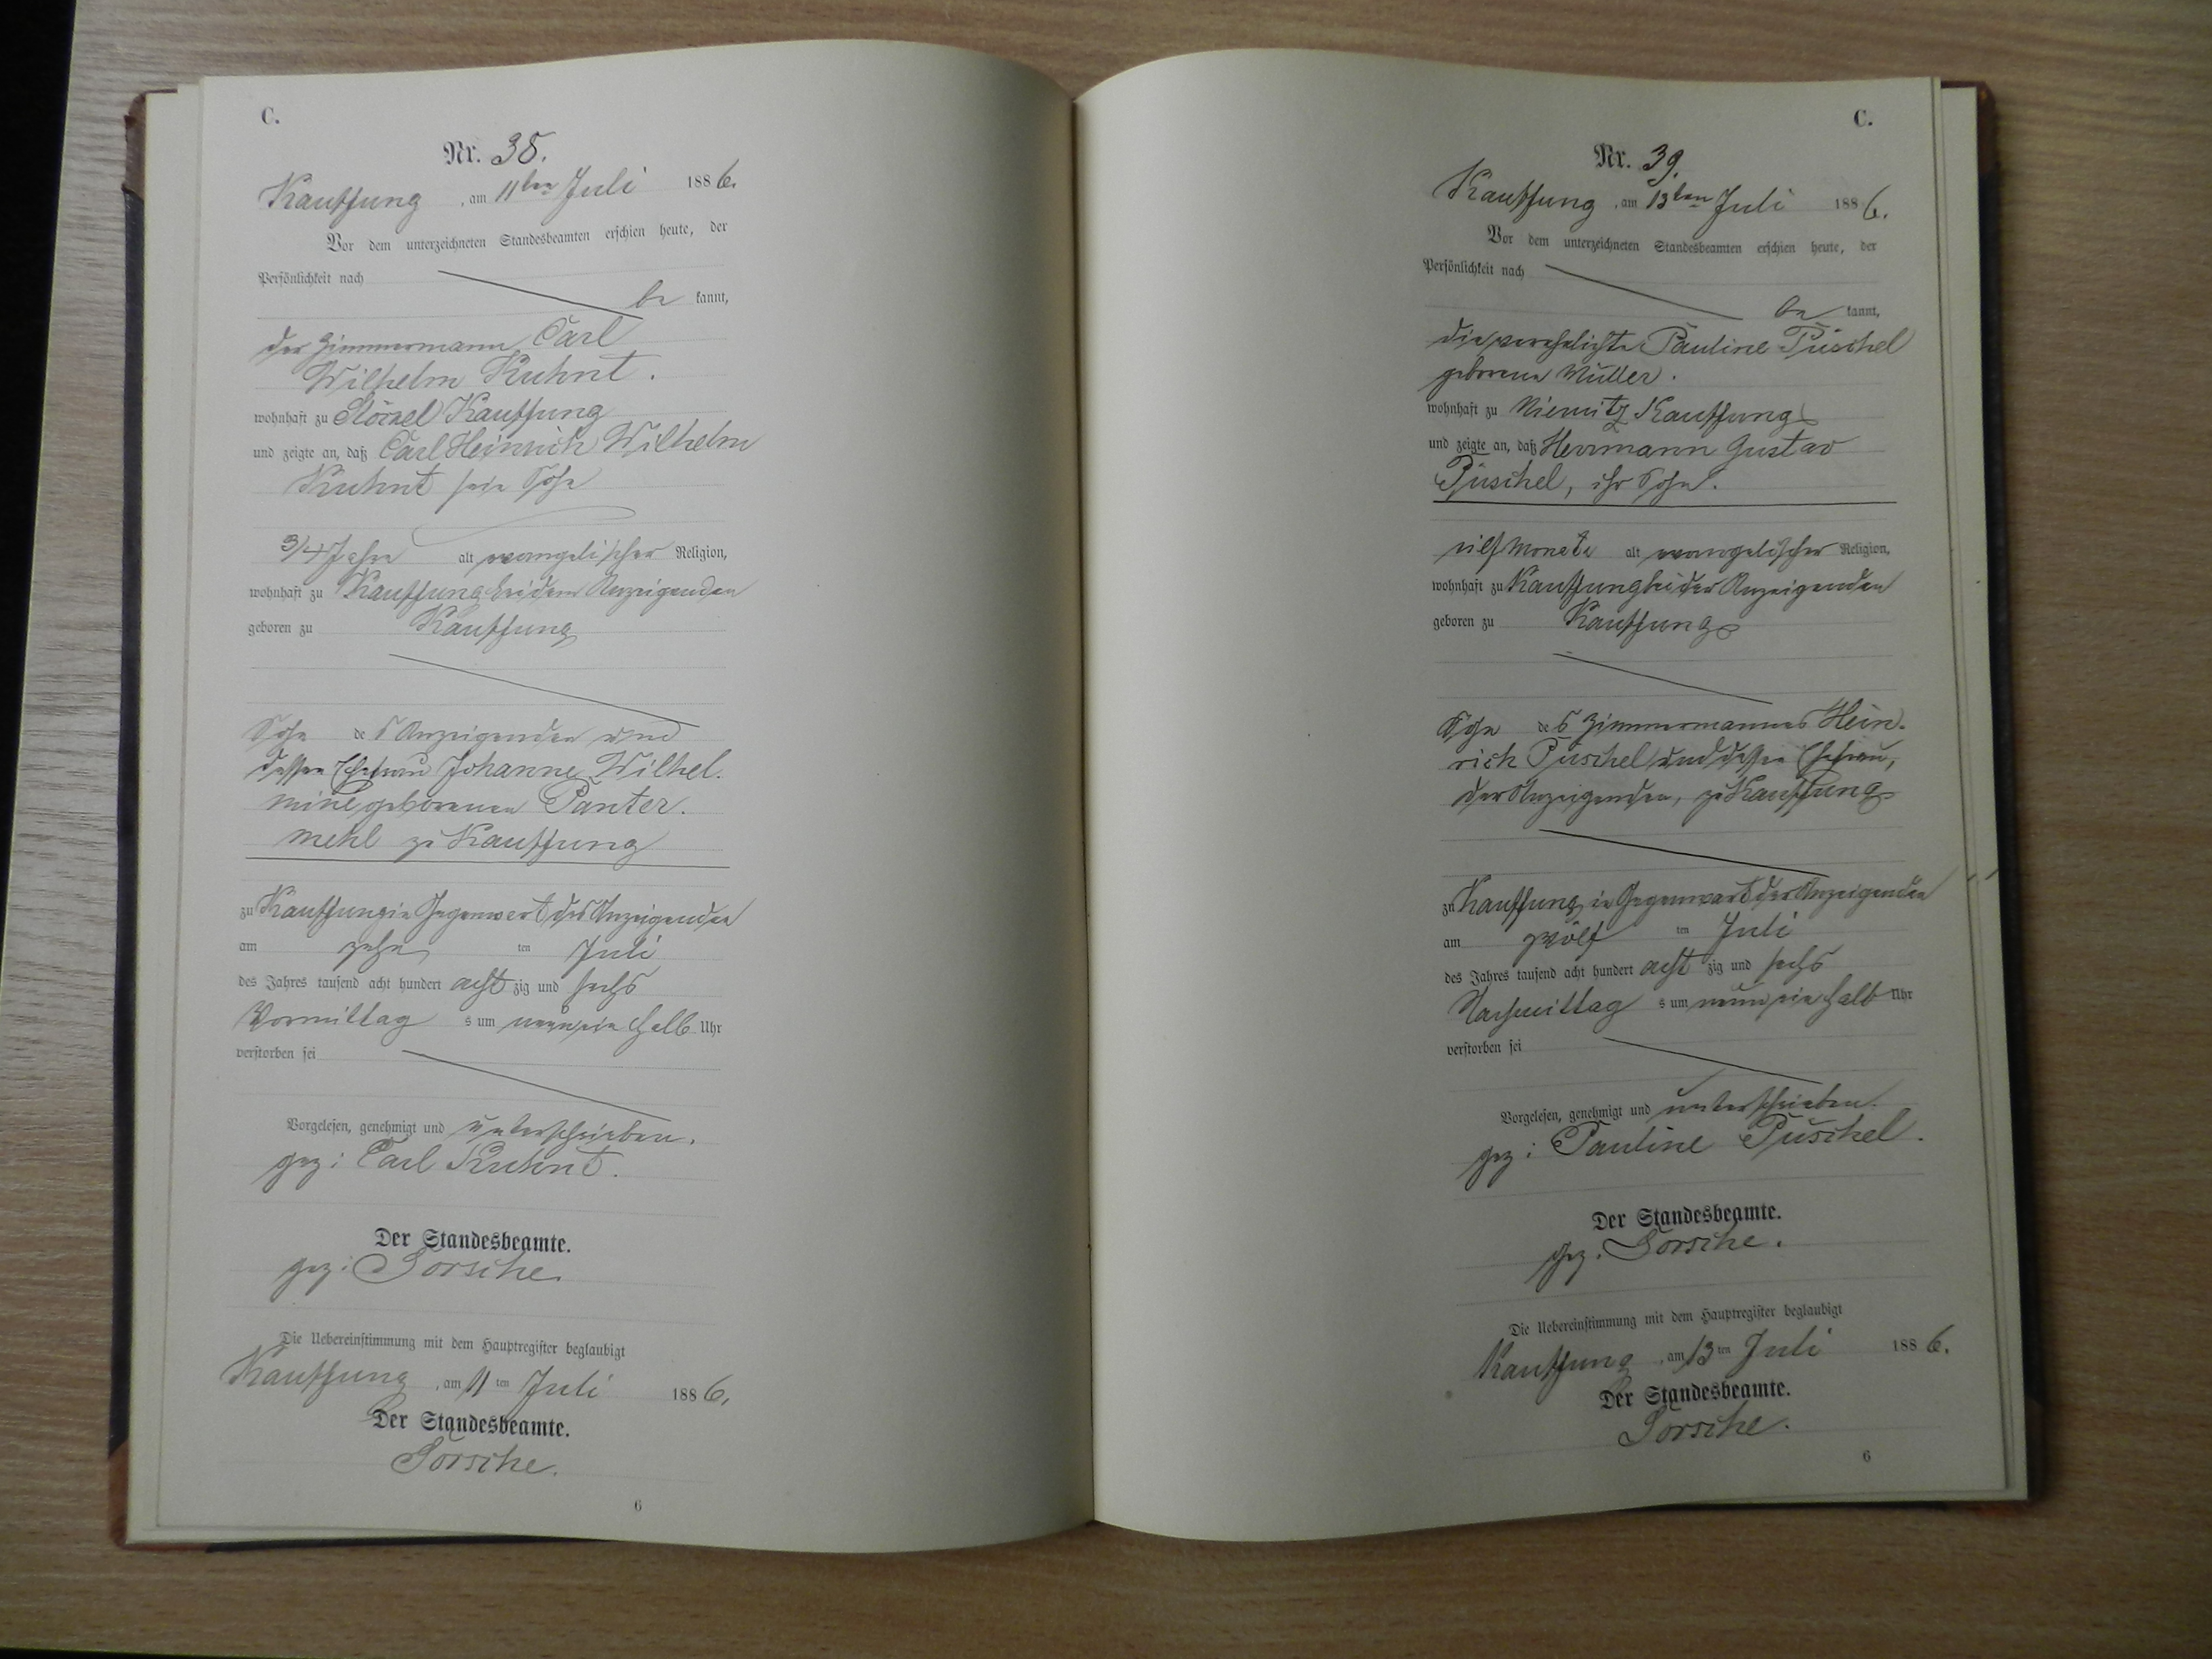 C.
Nr. 38.
Kauffung, am 11ten Juli 1886.
Vor dem unterzeichneten Standesbeamten erschien heute, der
Persönlichkeit nach
be kannt,
der Zimmermann Carl
Wilhelm Kuhnt.
wohnhaft zu Stöckel Kauffung
und zeigte an, daß Carl Heinrich Wilhelm
Kuhnt sein Sohn
3/4 Jahre alt evangelischer Religion,
wohnhaft zu Kauffung bei dem Anzeigenden
geboren zu Kauffung
Sohn des Anzeigenden und
dessen Ehefrau Johanne Wilhel-
mine geborenen Panter-
mehl zu Kauffung
zu Kauffung in Gegenwart des Anzeigenden
am zehn ten Juli
des Jahres tausend acht hundert acht zig und sechs
Vormittag s um neun ein halb Uhr
verstorben sei
Vorgelesen, genehmigt und unterschrieben.
gez: Carl Kuhnt.
Der Standesbeamte.
gez: Sorsche.
Die Uebereinstimmung mit dem Hauptregister beglaubigt
Kauffung, am 11ten Juli 1886.
Der Standesbeamte.
Sorsche.
6
C.
Nr. 39.
Kauffung, am 13ten Juli 1886.
Vor dem unterzeichneten Standesbeamten erschien heute, der
Persönlichkeit nach
be kannt,
die verehelichte Pauline Püschel
geborene Müller.
wohnhaft zu Niemitz Kauffung
und zeigte an, daß Herrmann Gustav
Püschel, ihr Sohn.
elf Monate alt evangelischer Religion,
wohnhaft zu Kauffung bei der Anzeigenden
geboren zu Kauffung
Sohn des Zimmermannes Hein-
rich Püschel und dessen Ehefrau,
der Anzeigenden, zu Kauffung
zu Kauffung in Gegenwart der Anzeigenden
am zwölf ten Juli
des Jahres tausend acht hundert acht zig und sechs
Nachmittag s um neun ein halb Uhr
verstorben sei
Vorgelesen, genehmigt und unterschrieben.
gez: Pauline Püschel.
Der Standesbeamte.
gez. Sorsche.
Die Uebereinstimmung mit dem Hauptregister beglaubigt
Kauffung, am 13ten Juli 1886.
Der Standesbeamte.
Sorsche.
6